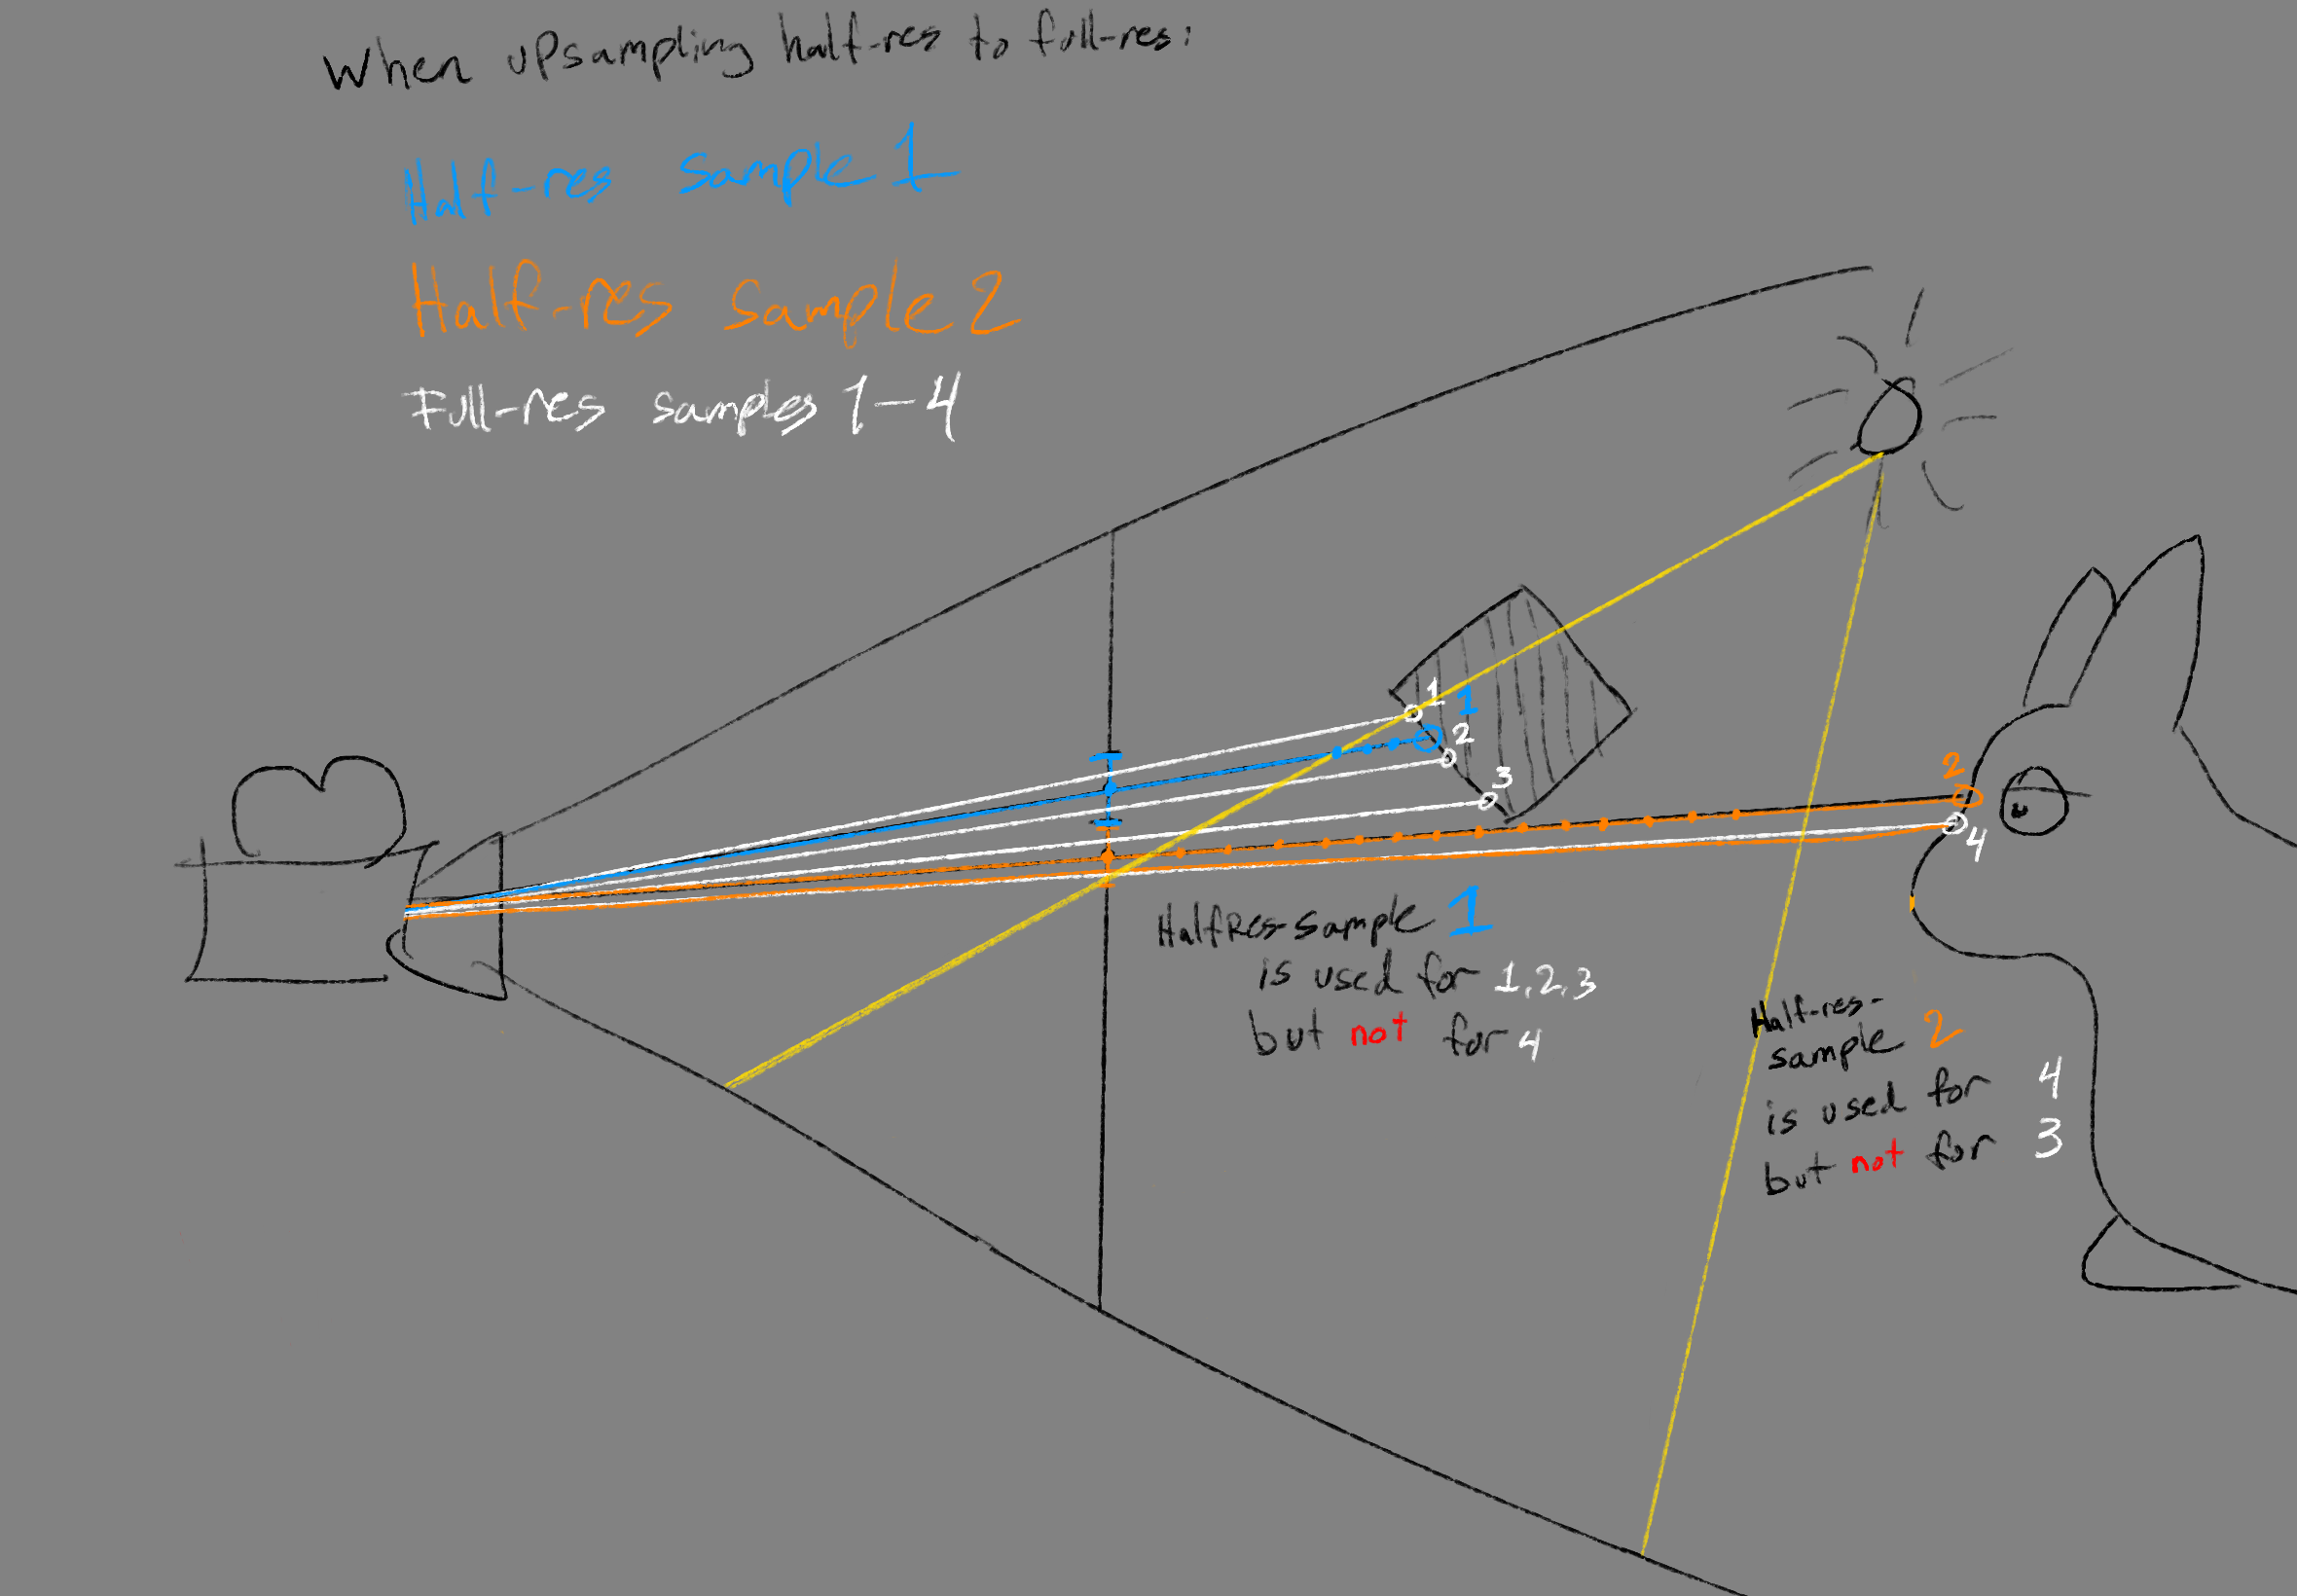 When upsampling half-res to full-res:
Half-res sample 1
Half-res sample 2
Full-res samples 1-4
1
1
2
3
2
4
HalfRes-sample 1
is used for 1,2,3
but not for 4
Half-res-
sample 2
is used for 4
but not for 3